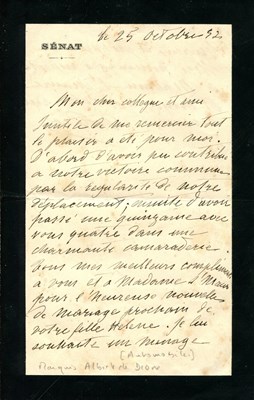 le 25 Octobre 32
SÉNAT
Mon cher collegue et ami
Inutile de me remercier tout
le plaisir a été pour moi.
D'abord d'avoir pu contribuer
a notre victoire commune
par la regularité de notre
déplacement; ensuite d'avoir
passé une quinzaine avec
vous quatre dans une
charmante camaraderie
Tous mes meilleurs compliments
a vous et a Madame
pour l'Heureuse nouvelle
de mariage prochain de
votre fille Helene. Je leu
souhaite un menage
(Automobiles)
Marquis Albert de Dion